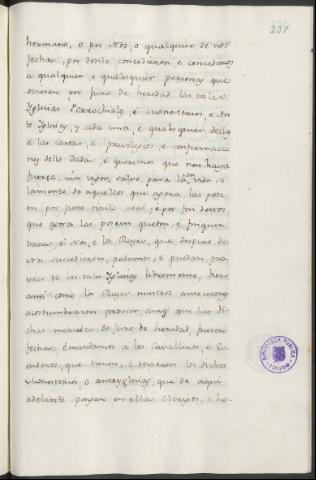 231
hermano, o por Nos, o qualquier de nos
fechas, por donde concedieron, é concedimos
a qualquier, o qualesquier personas que
oviesen por juro de heredad las tales
Yglesias Parrochiales, é monesterios, e An-
te Yglesias, y cada una, é qualesquier dellas
é las cartas, é previlegios, é confirmacio-
nes dello dadas, é queremos que non haya
fuerza, nin vigor, salvo para en la vida so-
lamente de aquellos que agora las pose-
en por juro, titulo real, é por fin dellos,
que agora las poseen queden, é finquen
vacas, é Nos, e los Reyes, que despues de
Nos succedieren, podamos, é puedan pro-
veer de las tales Yglesias libremente, bien
ansi como los Reyes nuestros antecesores
acostumbraron proveer, antes que las di-
chas mercedes de juro de heredad, fuesen
fechas, é mandamos a los Cavalleros, é Es-
cuderos, que tienen, o tovieren los dichos
monesterios, o anteyglesias, que de aqui
adelante pongan en ellas Clerigos, e ho-
BIBLIOTECA PUBLICA
TOLEDO